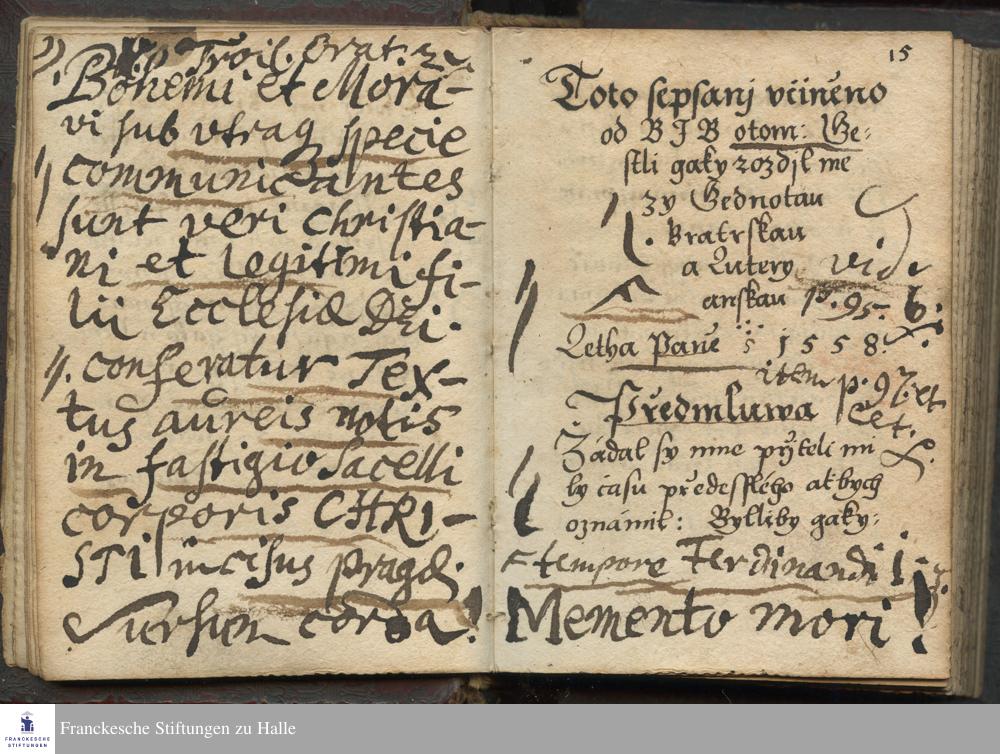 Troil. Orat. 2
Bohemi et Mora-
vi sub utraq specie
communicantes
sunt veri Christia-
ni et legitimi fi-
lii Ecclesiæ Dei.
conseratur Tex-
tus aureis notis
in fastigio Sacelli
corporis CHRI-
STI incisus pragæ.
Sursum corda!
15
Toto sepsanj včiněno
od B J B otom: Ge-
stli gaky rozdjl me
zy Gednotau
Bratrskau
a Lutery vide
anskau p. 95. b.
Letha Paně 1558.
item p. 97. et
Předmluwa
Žádal sy mne přyteli mi
ly času předesslého abych
oznámil: Bylliby gaky:
tempore Ferdinandi I.
Memento mori!
Franckesche Stiftungen zu Halle
FRANCKESCHE
STIFTUNGEN